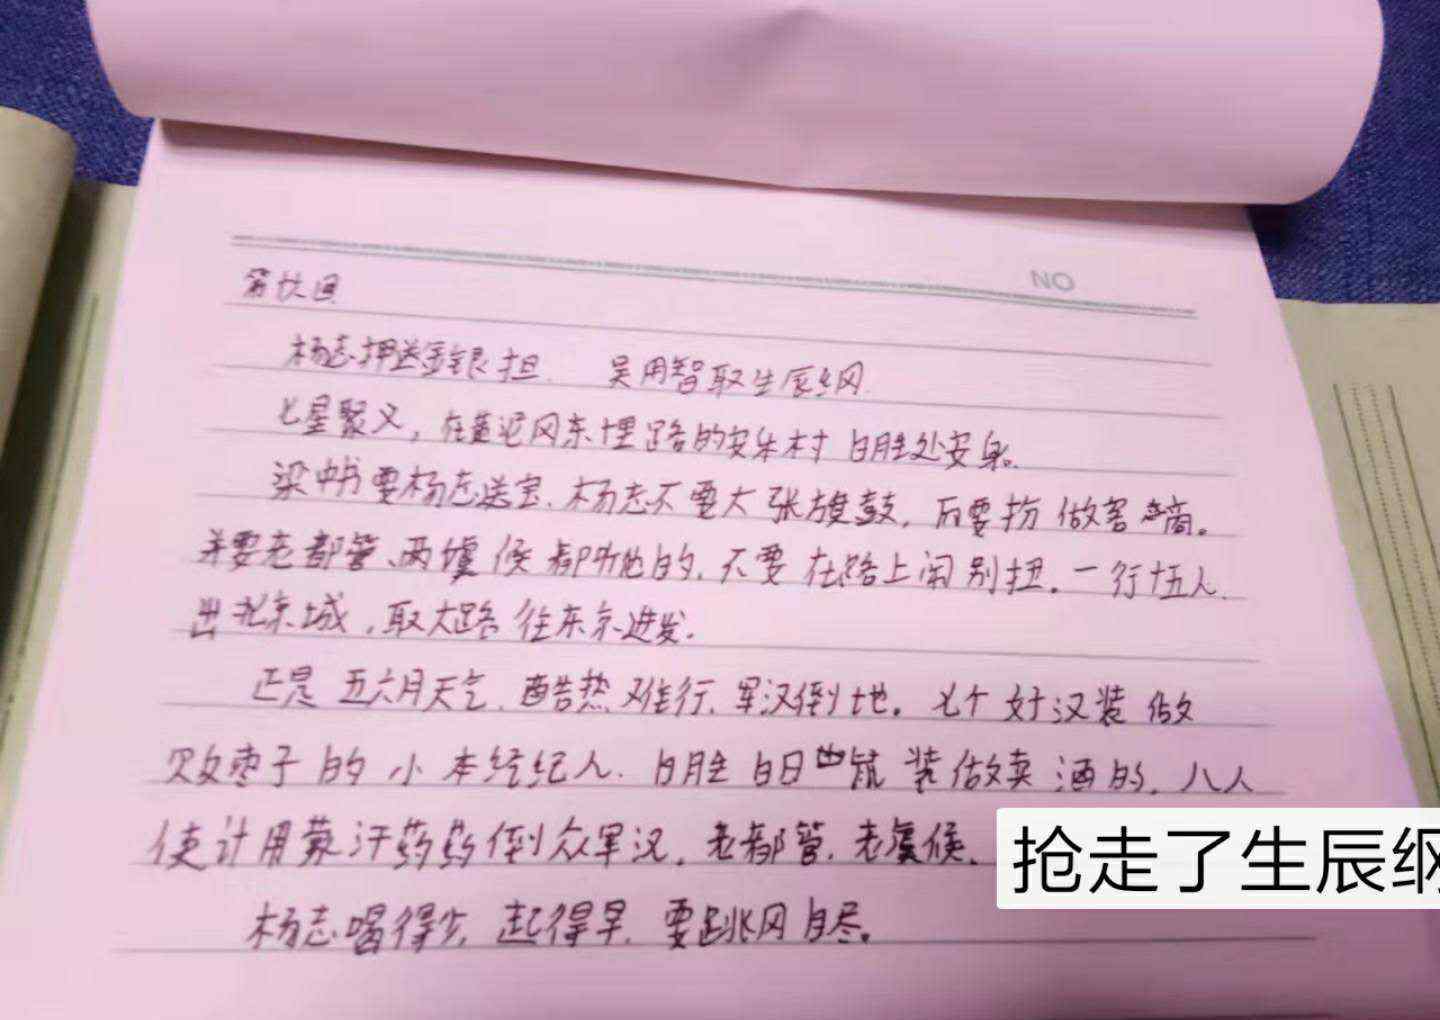 NO
第拾回
杨志押送金银担 吴用智取生辰纲.
七星聚义，在黄泥冈东十里路的安乐村 白胜处安身.
梁中书要杨志送宝. 杨志不要大张旗鼓, 而要扮做客商。
并要老都管、两虞候都听他的, 不要在路上闹别扭. 一行十五人,
出北京城, 取大路往东京进发.
正是五六月天气, 酷热难行, 军汉倒地。七个好汉装做
贩枣子的小本经纪人. 白胜白日鼠装做卖酒的, 八人
使计用蒙汗药药倒众军汉, 老都管, 老虞候, 抢走了生辰纲
杨志喝得少, 起得早, 要跳冈自尽。